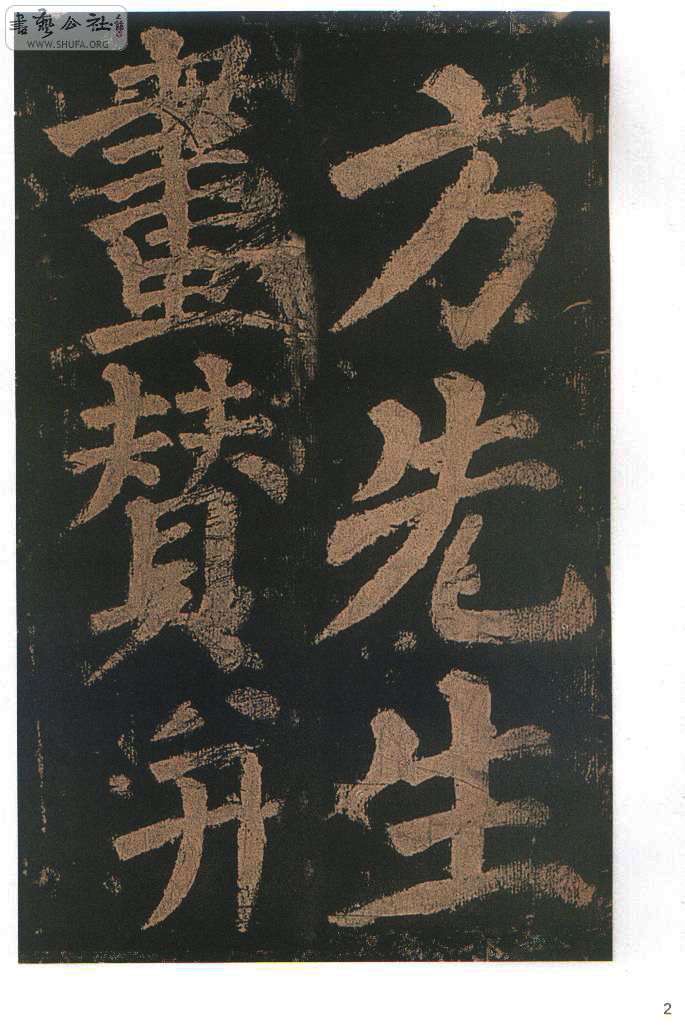 方先生
畫贊并
書藝公社
WWW.SHUFA.ORG
2